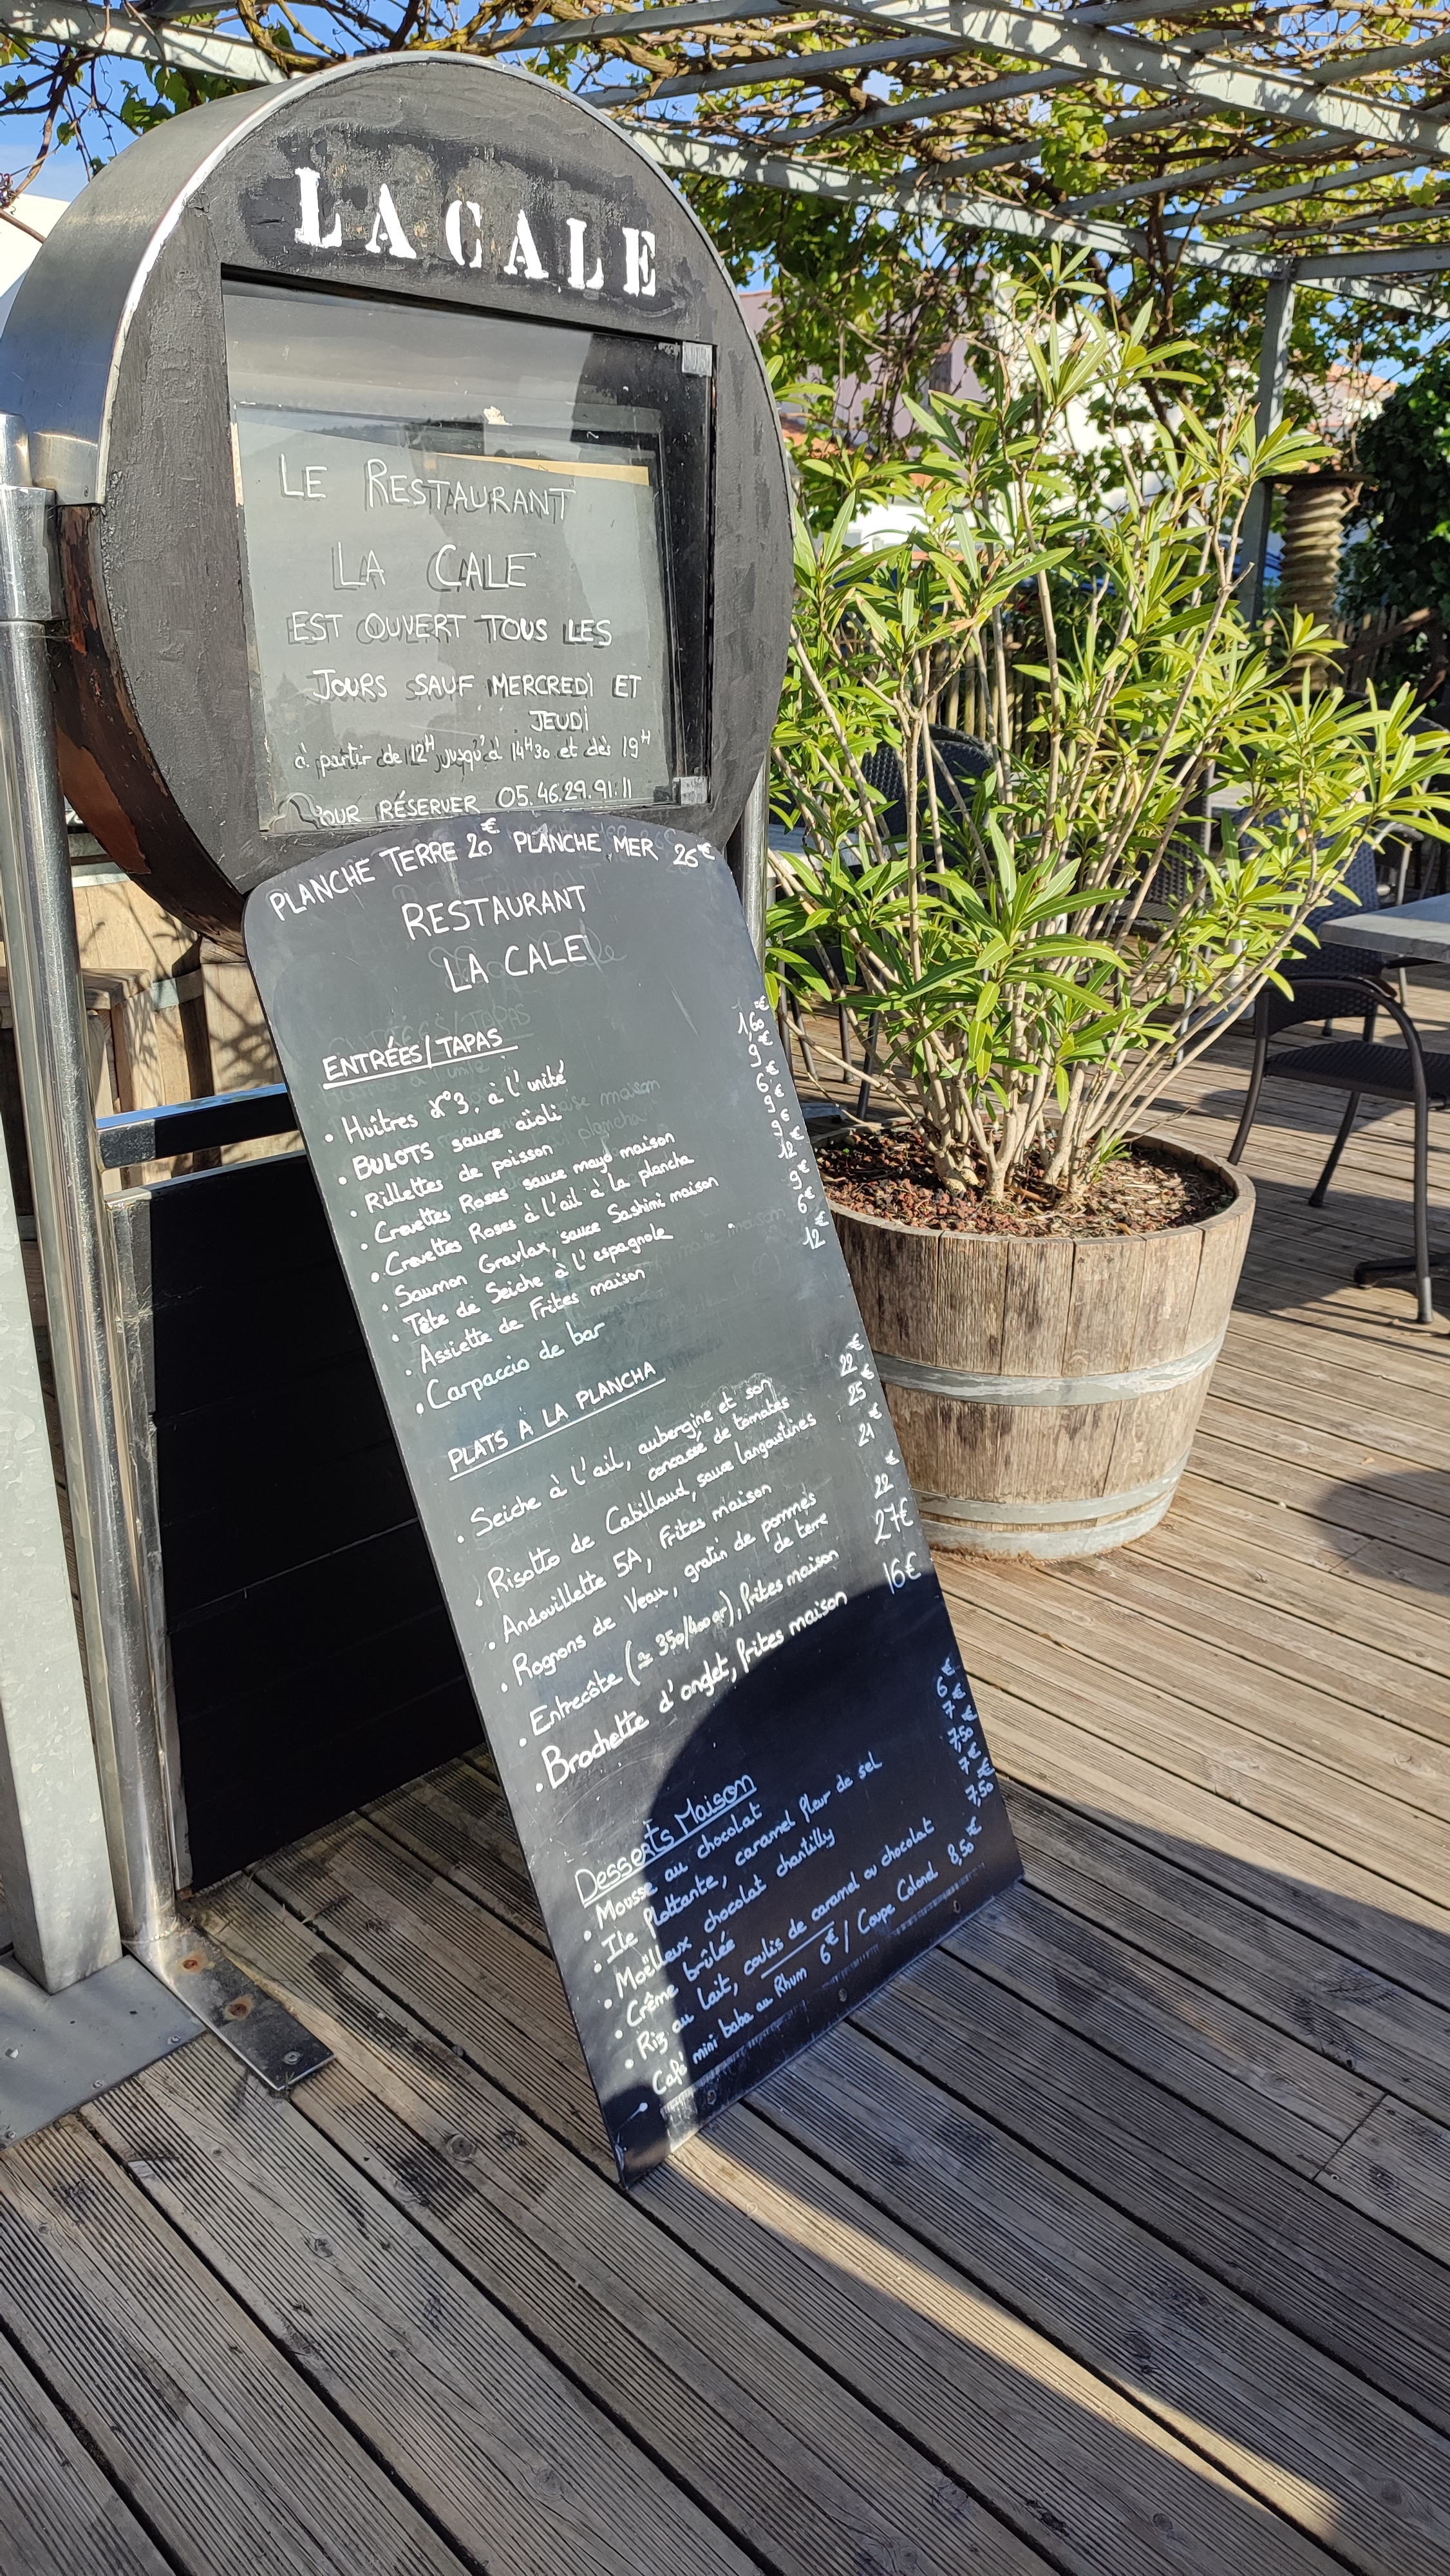 LA CALE
LE RESTAURANT
LA CALE
EST OUVERT TOUS LES
JOURS SAUF MERCREDI ET
JEUDI
à partir de 12H jusqu'à 14H30 et dès 19H
POUR RÉSERVER 05.46.29.91.11
PLANCHE TERRE 20€ PLANCHE MER 26€
RESTAURANT
LA CALE
ENTRÉES/TAPAS
• Huîtres N°3, à l'unité 1,60€
• BULOTS sauce aïoli 9€
• Rillettes de poisson 6€
• Crevettes Roses sauce mayo maison 9€
• Crevettes Roses à l'ail à la plancha 9€
• Saumon Gravlax, sauce Sashimi maison 12€
• Tête de Seiche à l'espagnole 9€
• Assiette de Frites maison 6€
• Carpaccio de bar 12€
PLATS À LA PLANCHA
• Seiche à l'ail, aubergine et son 22€
concassé de tomates
• Risotto de Cabillaud, sauce langoustines 25€
• Andouillette 5A, Frites maison 21€
• Rognons de Veau, gratin de pommes 22€
de terre
• Entrecôte (≃ 350/400gr), frites maison 27€
• Brochette d'onglet, frites maison 16€
Desserts Maison
• Mousse au chocolat 6€
• Ile flottante, caramel fleur de sel 7€
• Moëlleux chocolat chantilly 7,50
• Crême brûlée 7€
• Riz au lait, coulis de caramel ou chocolat 7,50€
Café mini baba au Rhum 6€ / Coupe Colonel 8,50€